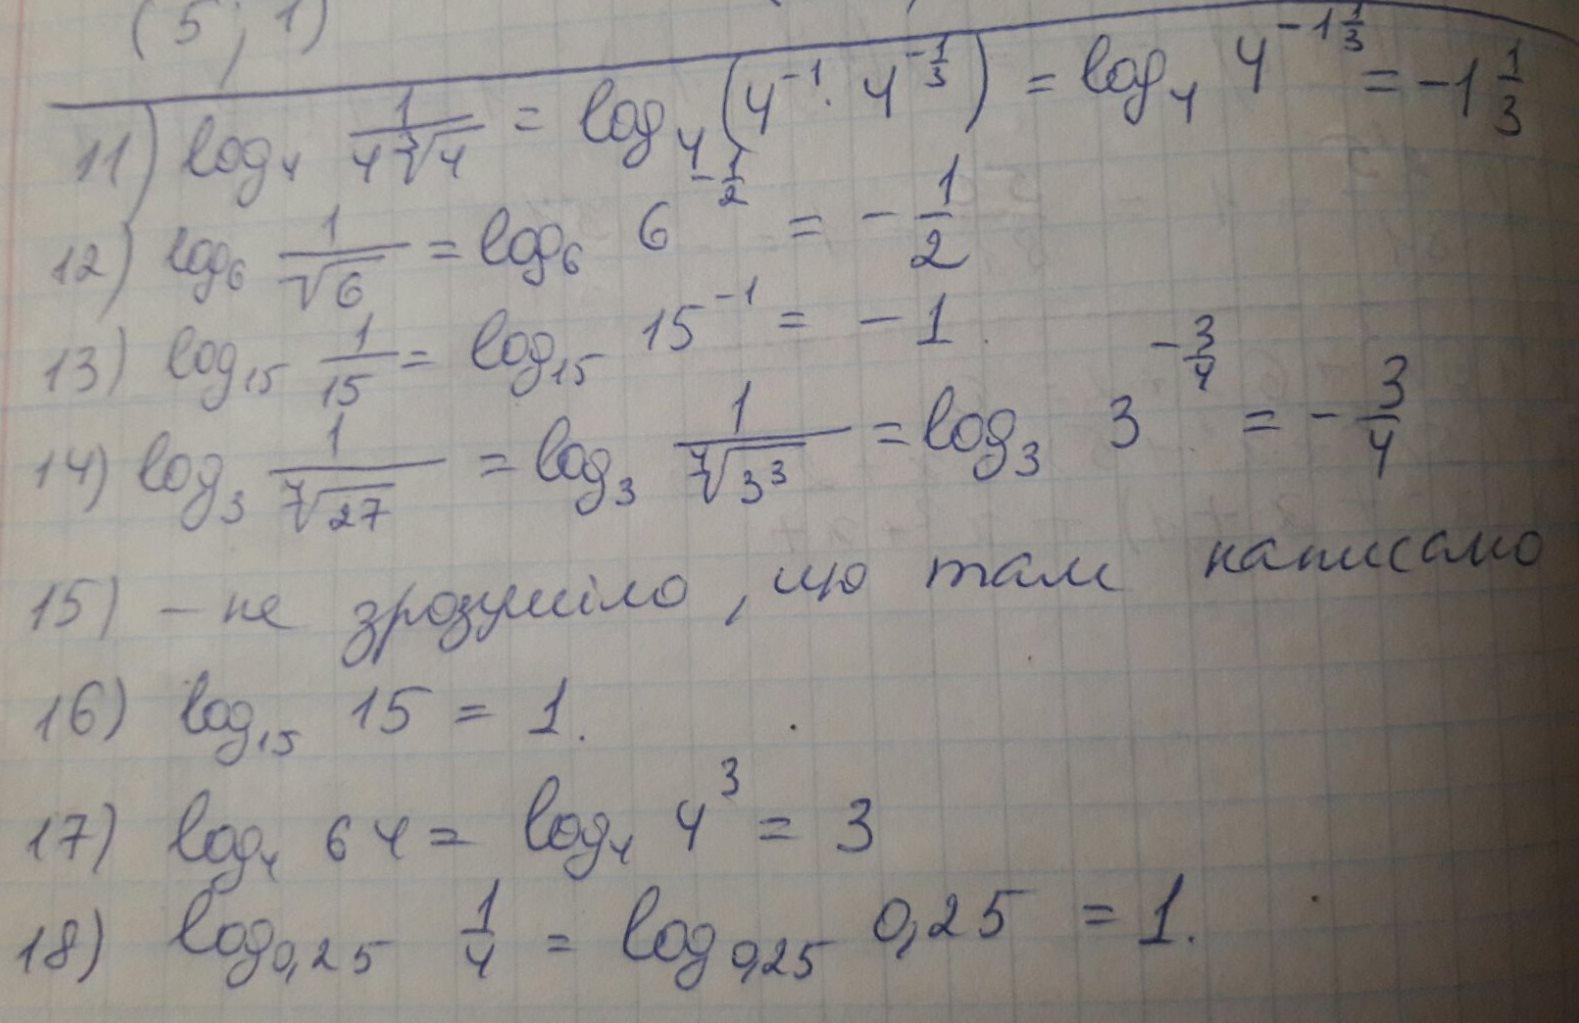 (5; 1)
11) log₄ 1/(4∛4) = log₄(4⁻¹ · 4^(-1/3)) = log₄ 4^(-1 1/3) = -1 1/3
12) log₆ 1/√6 = log₆ 6^(-1/2) = - 1/2
13) log₁₅ 1/15 = log₁₅ 15⁻¹ = - 1
14) log₃ 1/⁴√27 = log₃ 1/⁴√3³ = log₃ 3^(-3/4) = - 3/4
15) – не зрозуміло, що там написано
16) log₁₅ 15 = 1.
17) log₄ 64 = log₄ 4³ = 3
18) log₀,₂₅ 1/4 = log₀,₂₅ 0,25 = 1.